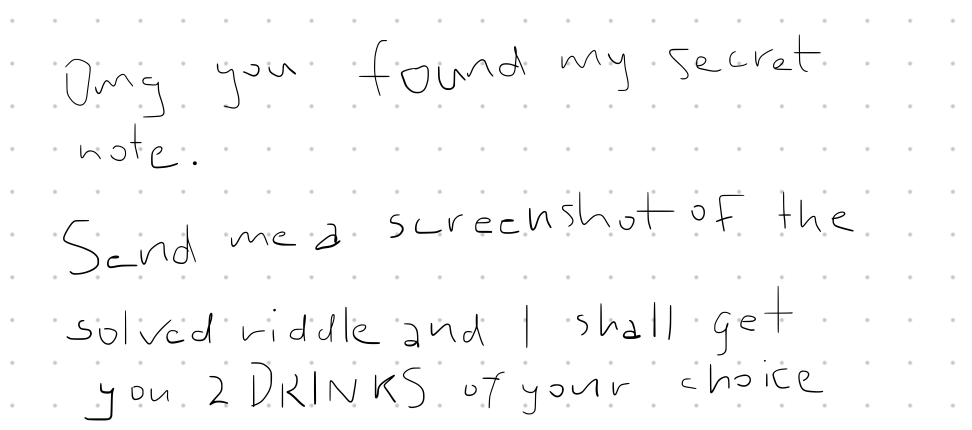 Omg you found my secret
note.
Send me a screenshot of the
solved riddle and I shall get
you 2 DRINKS of your choice